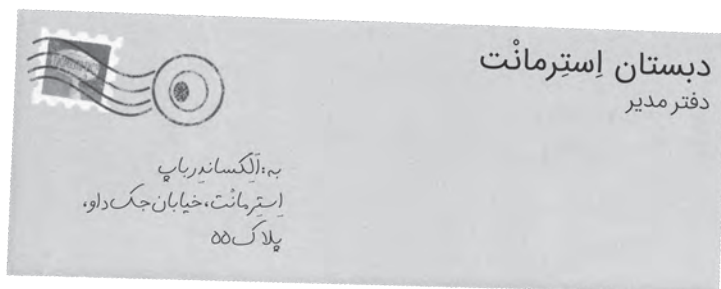 دبستان اِستِرمانْت
دفتر مدیر
به: اَلِکساندِر باپ
اِستِرمانْت، خیابان جک داو،
پلاک ۵۵